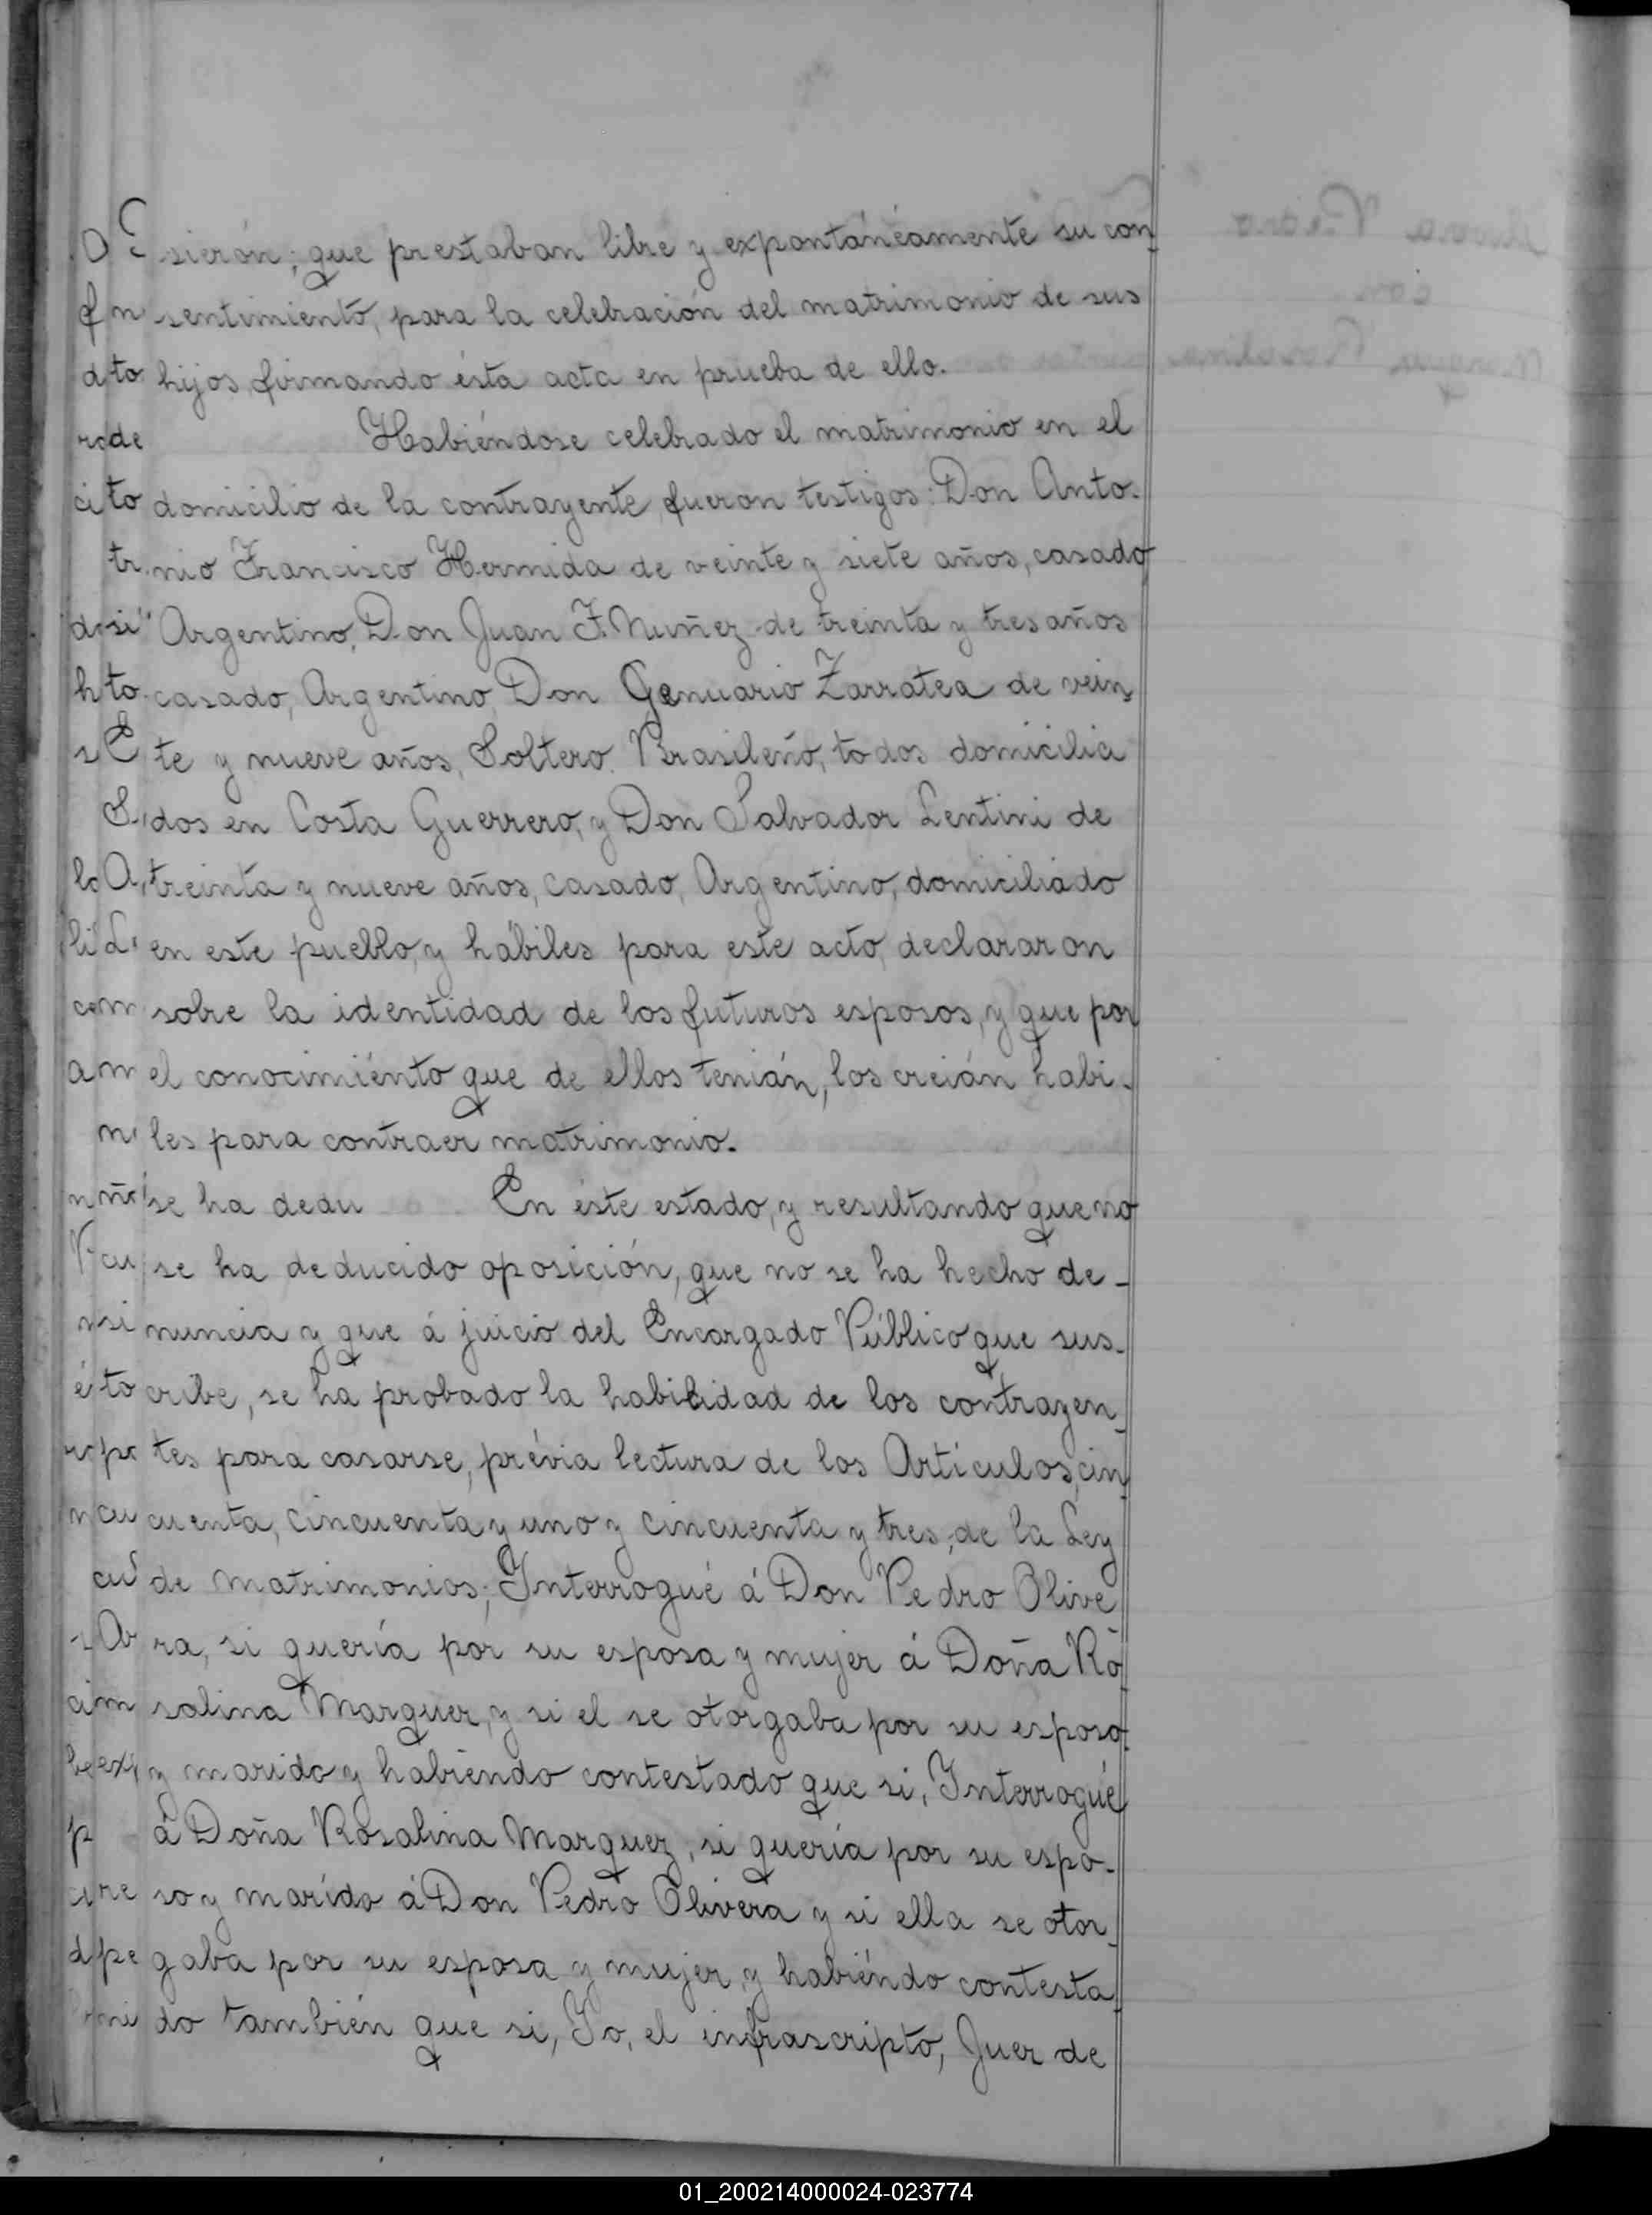 sierón; que prestaban libre y expontáneamente su con_
sentimiento, para la celebración del matrimonio de sus
hijos, firmando ésta acta en prueba de ello.
Habiéndose celebrado el matrimonio en el
domicilio de la contrayente, fueron testigos: Don Anto-
nio Francisco Hermida de veinte y siete años, casado
Argentino, Don Juan F. Nuñez de treinta y tres años
casado, Argentino, Don Genuario Zarratea de vein_
te y nueve años, Soltero. Brasileño, todos domicilia
dos en Costa Guerrero, y Don Salvador Lentini de
treinta y nueve años, casado, Argentino, domiciliado
en este pueblo, y hábiles para este acto, declararon
sobre la identidad de los futuros esposos, y que por
el conocimiénto que de ellos tenián, los creián habi-
les para contraer matrimonio.
se ha dedu En éste estado, y resultando que no
se ha deducido oposición, que no se ha hecho de-
nuncia y que á juicio del Encargado Público que sus-
cribe, se ha probado la habilidad de los contrayen_
tes para casarse, prévia lectura de los Artículos, cin_
cuenta, cincuenta y uno y cincuenta y tres, de la Ley
de matrimonios; Interrogué á Don Pedro Olive
ra, si quería por su esposa y mujer á Doña Ro
salina Marquez, y si el se otorgaba por su esposo
y marido y habiéndo contestado que si, Interrogué
á Doña Rosalina Marquez, si quería por su espo-
so y marído á Don Pedro Olivera y si ella se otor_
gaba por su esposa y mujer, y habiéndo contesta
do también que si, Yo, el infrascripto, Juez de
01_200214000024-023774